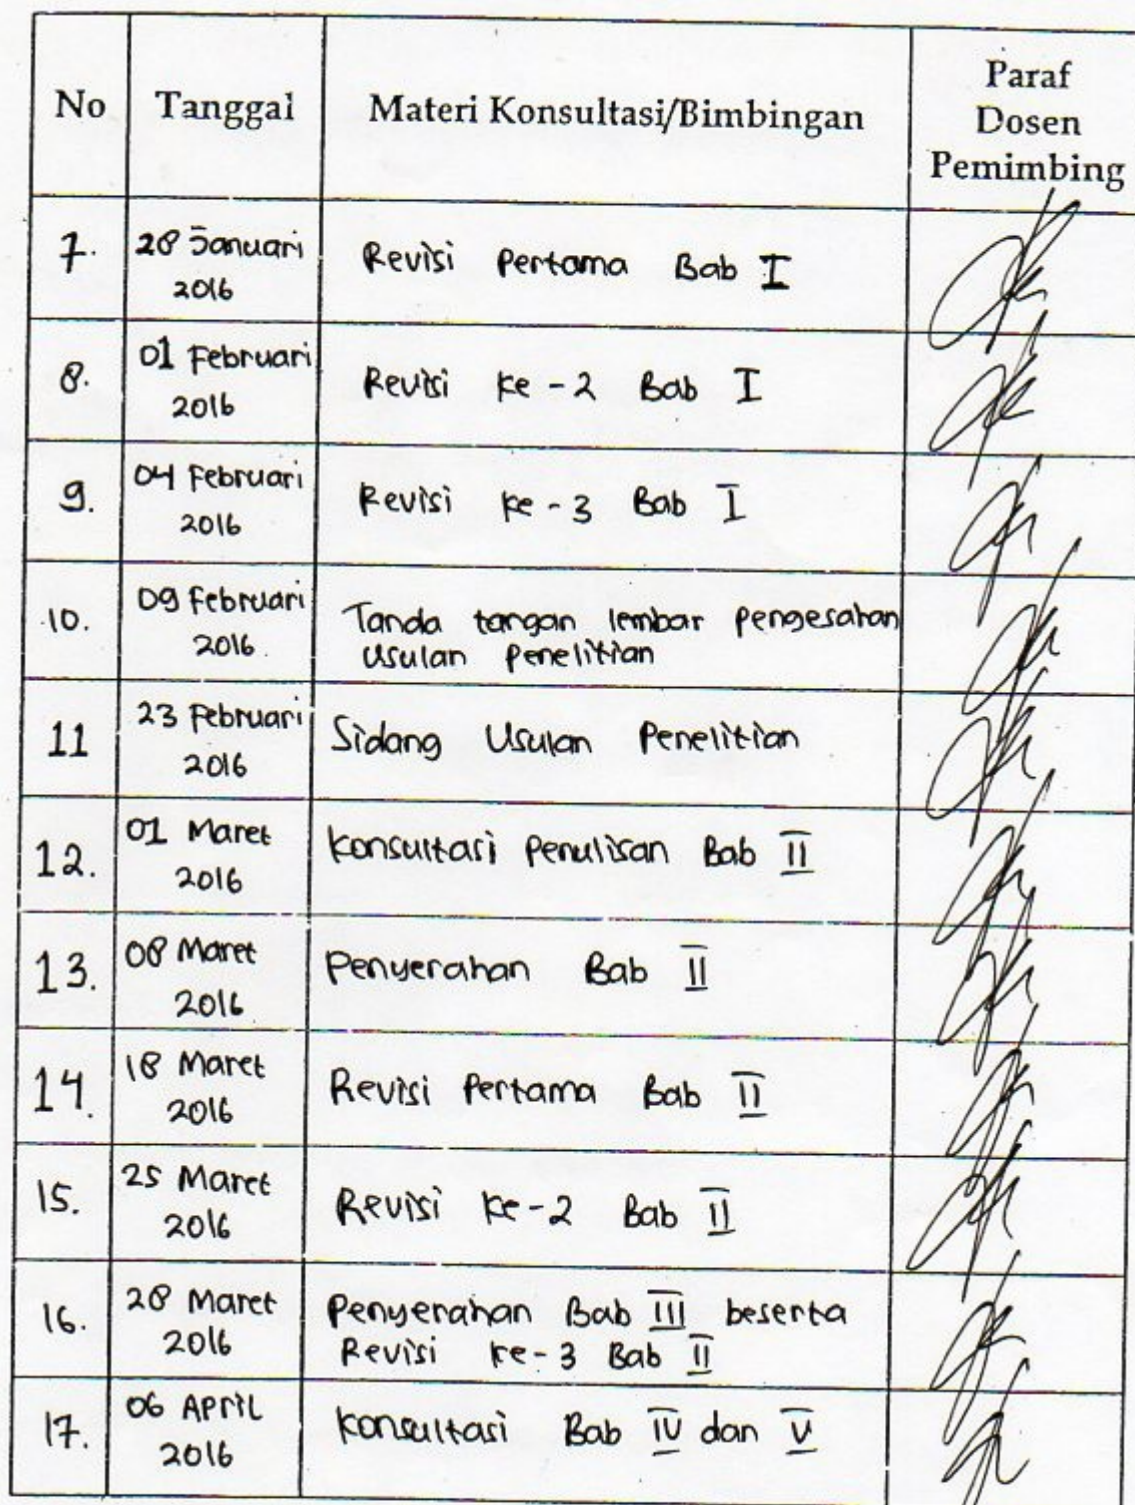 No Tanggal Materi Konsultasi/Bimbingan Paraf
Dosen
Pemimbing
7. 28 Januari Revisi Pertama Bab I
2016
8. 01 Februari Revisi ke-2 Bab I
2016
9. 04 Februari Revisi ke-3 Bab I
2016
10. 09 Februari Tanda tangan lembar pengesahan
2016 Usulan Penelitian
11 23 Februari Sidang Usulan Penelitian
2016
12. 01 Maret Konsultasi Penulisan Bab II
2016
13. 08 Maret Penyerahan Bab II
2016
14. 18 Maret Revisi Pertama Bab II
2016
15. 25 Maret Revisi ke-2 Bab II
2016
16. 28 Maret Penyerahan Bab III beserta
2016 Revisi ke-3 Bab II
17. 06 April Konsultasi Bab IV dan V
2016